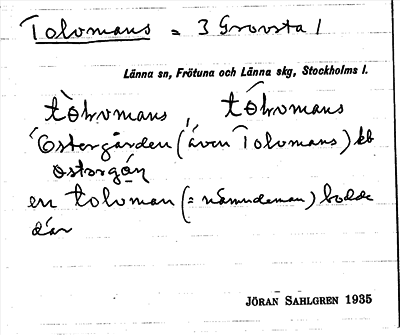 Tolvmans = 3 Grovsta 1
Länna sn, Frötuna och Länna skg, Stockholms l.
tòlvmans, tólvmans
Östergården (även Tolvmans) kb
östergå̄ɳ
en tolvman (= nämndeman) bodde
där
JÖRAN SAHLGREN 1935